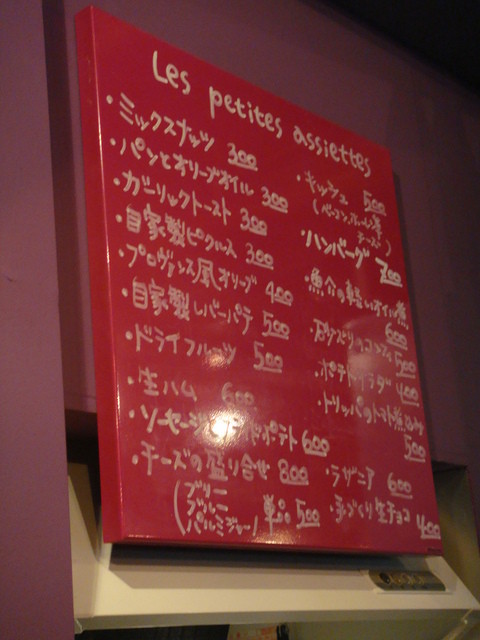 Les petites assiettes
・ミックスナッツ 300
・パンとオリーブオイル 300
・ガーリックトースト 300
・自家製ピクルス 300
・プロヴァンス風オリーブ 400
・自家製レバーパテ 500
・ドライフルーツ 500
・生ハム 600
・ソーセージ ポテト 600
・チーズの盛り合せ 800
(ブリー
ブルー
パルミジャーノ) 単品 500
・キッシュ 500
(ベーコン、ほうれん草
チーズ)
・ハンバーグ 700
・魚介の軽いオイル煮
600
・砂ズリのコンフィ 500
・ポテトサラダ 400
・トリッパのトマト煮込み
500
・ラザニア 600
・手づくり生チョコ 400